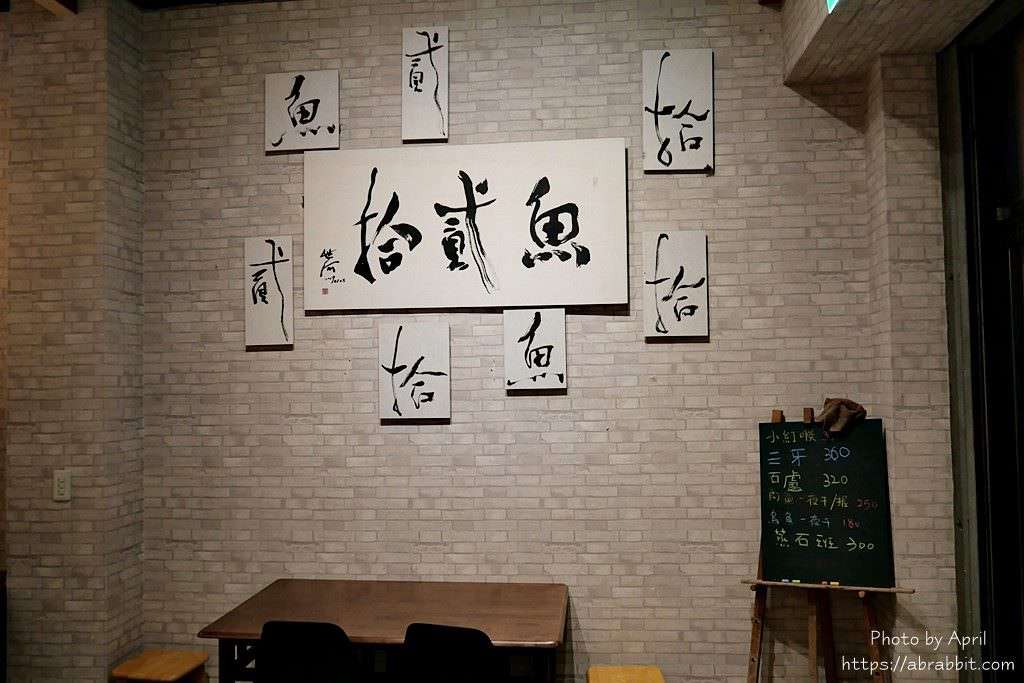 貳
魚
拾
魚貳拾
貳
拾
拾
魚
小紅喉
三牙 360
石盧 320
一夜干 250
烏魚一夜干 180
蒸石班 300
Photo by April
https://abrabbit.com